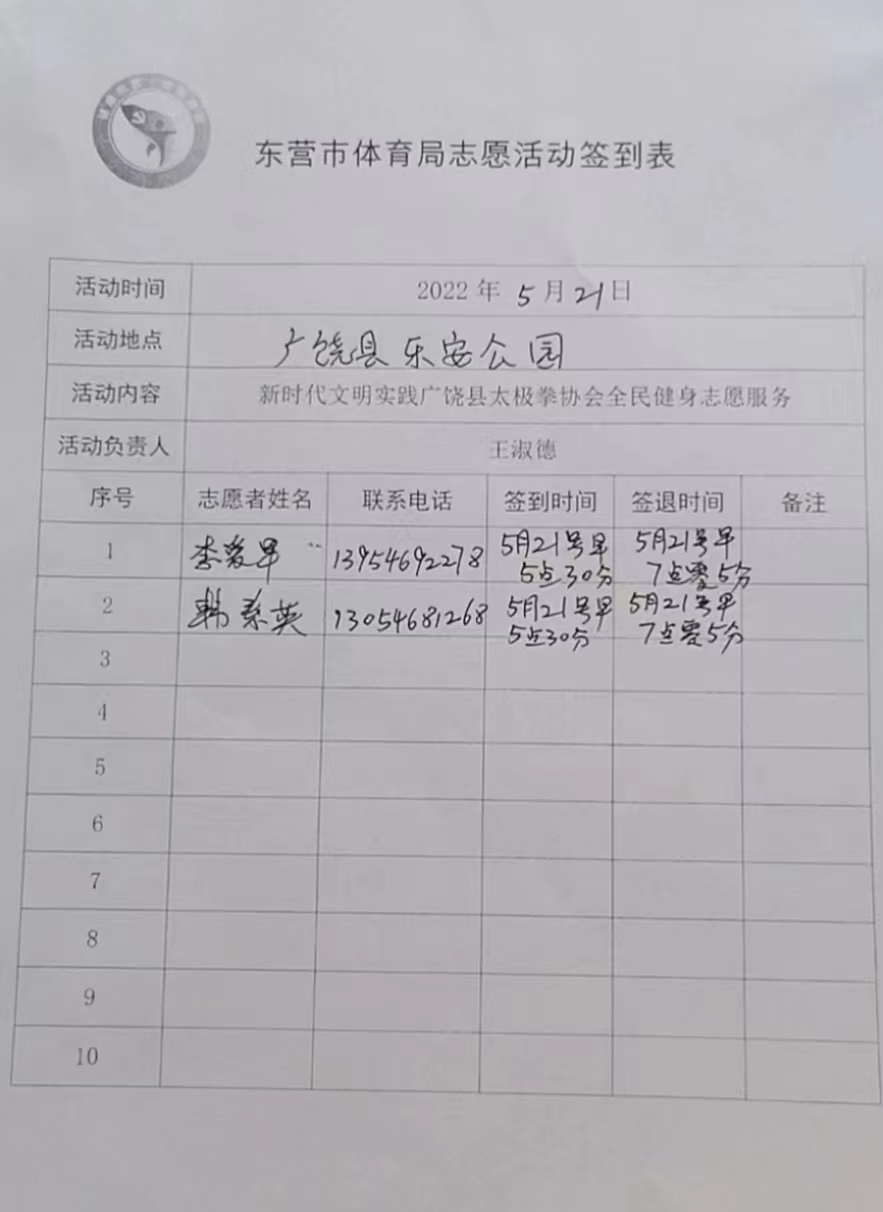 东营市体育局志愿活动签到表
活动时间 2022年 5月21日
活动地点 广饶县乐安公园
活动内容 新时代文明实践广饶县太极拳协会全民健身志愿服务
活动负责人 王淑德
序号 志愿者姓名 联系电话 签到时间 签退时间 备注
1 李爱早 13954692278 5月21号早 5月21号早
5点30分 7点零5分
2 韩素英 13054681268 5月21号早 5月21号早
5点30分 7点零5分
3
4
5
6
7
8
9
10